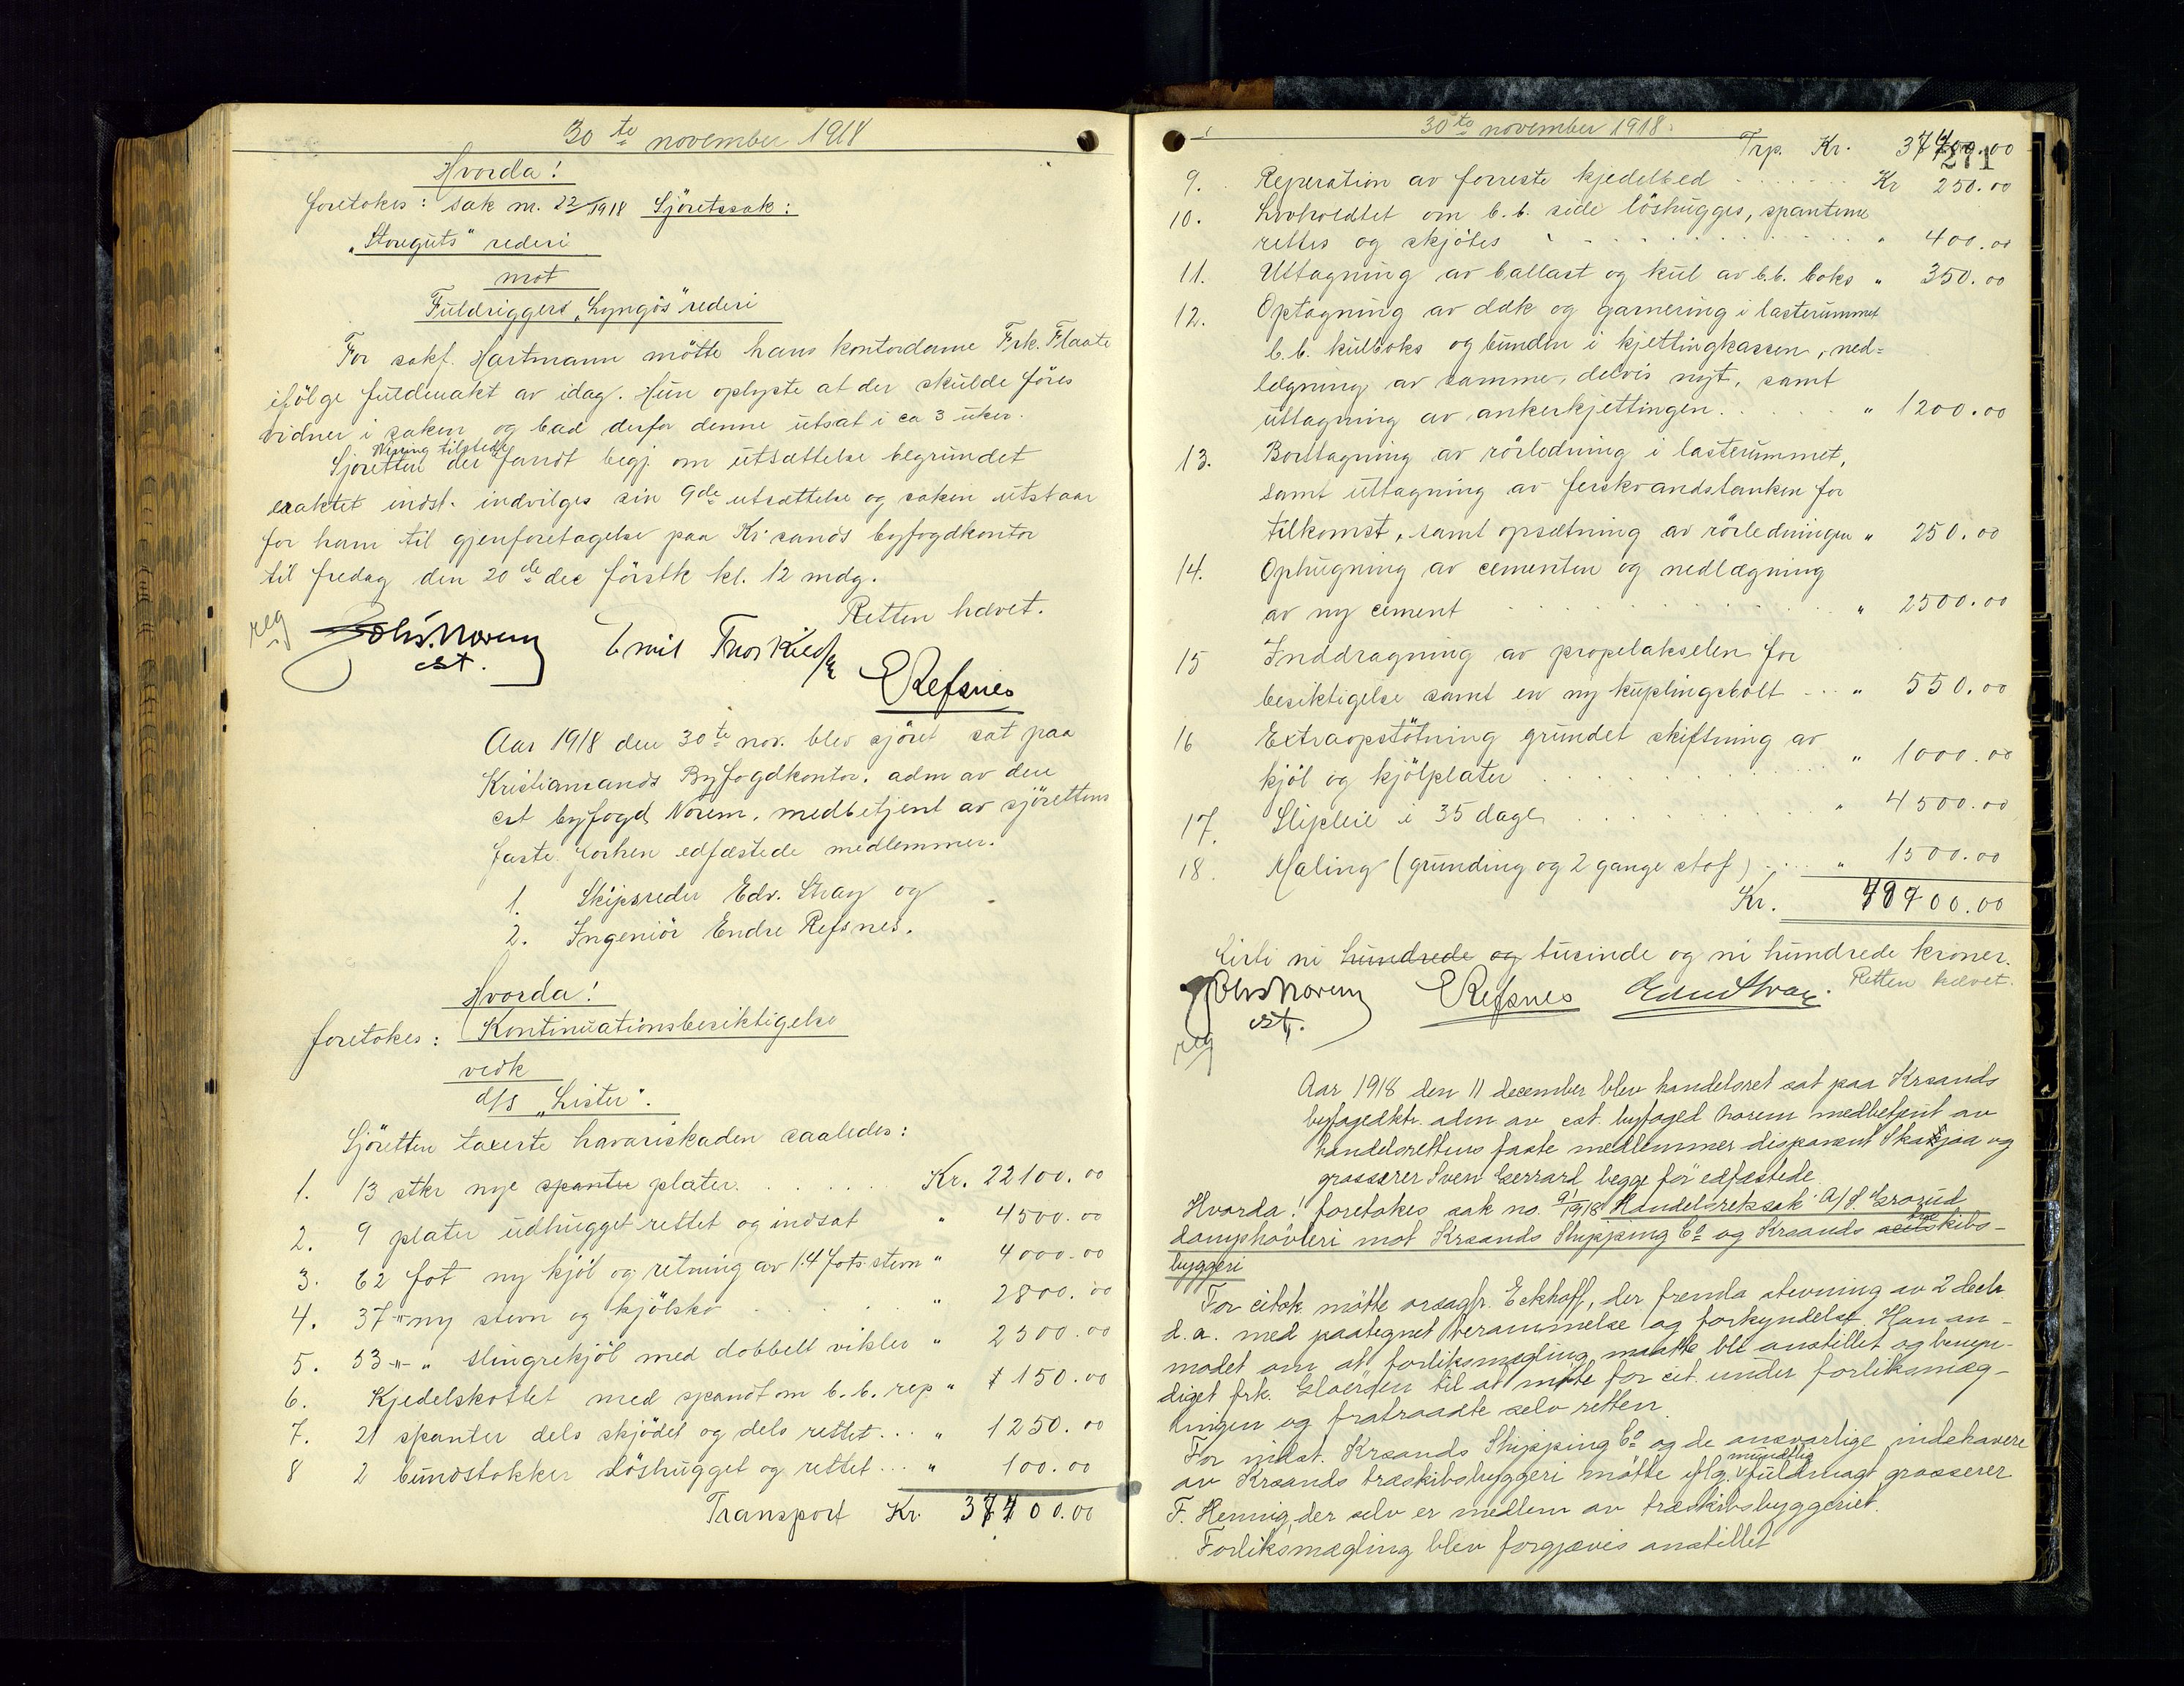 30te november 1918
Hvorda!
foretokes: sak nr. 22/1918 Sjöretssak:
"Storeguts" rederi
mot
Fuldriggers "Lyngös" rederi
For sakf. Hartmann mötte hans kontordame Frk. Flaate
ifölge fuldmakt av idag. Hun oplyste at der skulde föres
vidner i saken og bad derfor denne utsat i ca 3 uker.
tilstede
Sjöretten der fandt begj. om utsættelse begrundet
eraktet indst. indvilges sin 9de utsættelse og saken utstaar
for ham til gjenforetagelse paa Kr.sands byfogdkontor
til fredag den 20de dec förstk kl. 12 mdg.
Retten hævet.
reg
Johs. Norem
cst.
Emil
ERefsnes
Aar 1918 den 30te nov. blev sjöret sat paa
Kristiansands Byfogdkontor, adm av den
cst byfogd Norem, medbetjent av sjörettens
faste forhen edfæstede medlemmer.
1. Skipsreder Edv. Stray og
2. Ingeniör Endre Refsnes.
Hvorda!
foretokes: Kontinuationsbesiktigelse
vedk
d/s "Lister".
Sjöretten taxerte havariskaden saaledes:
1. 13 stkr nye spanter plater. Kr. 22100.00
2. 9 plater udhugget rettet og indsat " 4500.00
3. 62 fot ny kjöl og retning av 14 fots stevn " 4000.00
4. 37 -"- ny stevn og kjölsko " 2800.00
5. 53 -"- " slingrekjöl med dobbelt vikler " 2300.00
6. Kjedelskottet med spandt om b.b. rep. " 150.00
7. 21 spanter dels skjödet og dels rettet... " 1250.00
8 2 bundstokker löshugget og rettet... " 100.00
Transport Kr. 37400.00
30te november 1918.
271
Trp. Kr. 37400.00
9. Reperation av forreste kjedelbed Kr 250.00
10. Lovholdtet om b.b. side löshugges, spanterne
rettes og skjötes " 400.00
11. Uttagning av ballast og kul av b.b. boks " 350.00
12. Optagning av dæk og garnering i lasterummet
b.b. kulboks og bunden i kjettingkassen, ned=
lægning av samme, delvis nyt, samt
uttagning av ankerkjettingen. " 1200.00
13. Borttagning av rörledning i lasterummet,
samt uttagning av ferskvandstanken for
tilkomst, samt opsætning av rörledningen " 250.00
14. Ophugning av cementen og nedlægning
av ny cement " 2500.00
15 Inddragning av propelakselen for
besiktigelse samt en ny kuplingsbolt ... " 550.00
16 Extraopstötning grundet skiftning av
kjöl og kjölplater " 1000.00
17. Slipleie i 35 dage " 4500.00
18. Maling (grunding og 2 gange stof) " 1500.00
Kr. 49900.00
förti ni hundrede og tusinde og ni hundrede kroner.
Retten hævet.
Johs Norem
cst.
ERefsnes
Edv Stray.
reg
Aar 1918 den 11 december blev handelsret sat paa Krsands
byfogedktr. adm. av cst. byfoged Norem medbetjent av
handelsrettens faste medlemmer disponent Skatjaa og
grosserer Sven Gerrard begge för edfæstede.
Hvorda! foretokes sak no. 91/1918 Handelsretssak: A/S. Grorud
damphövleri mot Krsands Shipping Co og Krsands skibs-
byggeri
For citsk mötte orsagf. Eckhoff, der fremla stevning av 2 decb
d.a. med paategnet berammelse og forkyndelse. Han an-
modet om at forliksmægling maatte bli anstillet og bemyn-
diget frk. til at möte for cit. under forliksmæg-
lingen og fratraadte selv retten.
For indst. Krsands Shipping Co og de ansvarlige indehavere
mundtlig
av Krsands træskibsbyggeri mötte iflg. fuldmagt grosserer
F. Hennig, der selv er medlem av træskibsbyggeriet.
Forliksmægling blev forgjæves anstillet